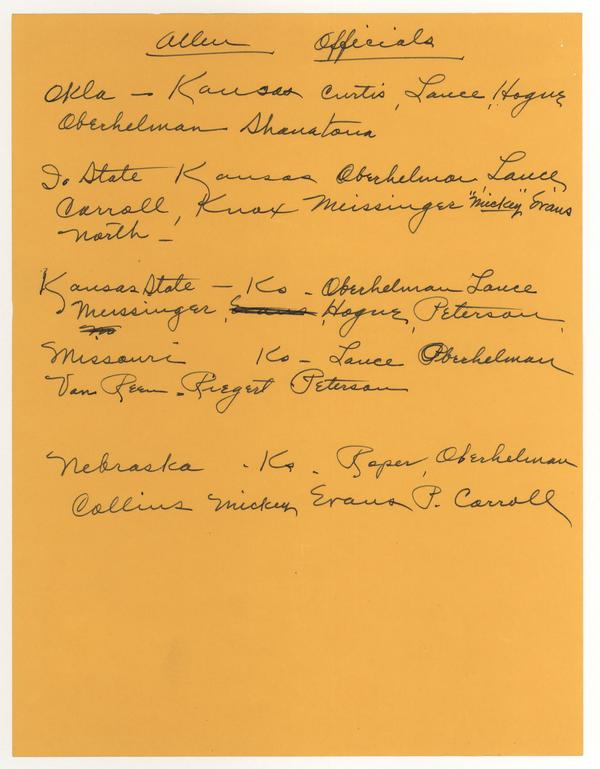 Allen Officials
Okla - Kansas Curtis, Lance, Hogue
Oberhelman Shanatona
Io State Kansas Oberhelman Lance
Carroll, Knox Meissinger "Mickey" Evans
North -
Kansas State - Ks - Oberhelman Lance
Meissinger, Evans, Hogue, Peterson,
Missouri Ks - Lance Oberhelman
Van Reen - Riegert Peterson
Nebraska - Ks - Roper, Oberhelman
Collins Mickey Evans P. Carroll